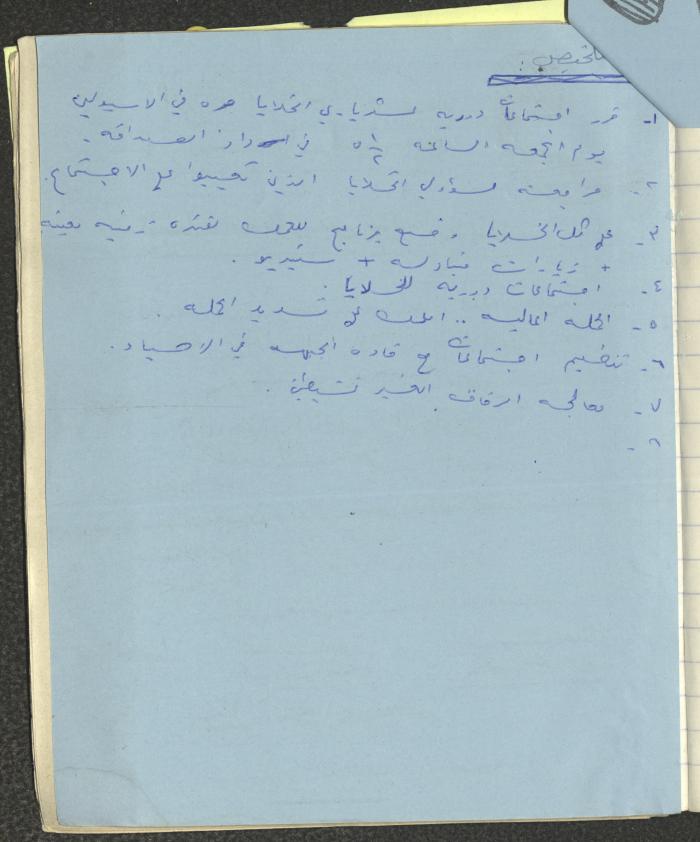 تلخيص:
١- قرر اجتماعات دوريه لسكرتاري الخلايا مره في الاسبوعين
يوم الجمعه الساعه ٥ ١/٢ في دار الصداقه.
٢- مراجعة مسؤولي الخلايا الذين تغيبوا عن الاجتماع.
٣- على كل الخلايا وضع برنامج للعمل لفتره زمنيه معينه
+ زيارات متبادله +
٤- اجتماعات دوريه للخلايا.
٥- الحمله الماليه .. العمل على تشديد الحمله.
٦- تنظيم اجتماعات مع قادة الجبهه في الاحياء.
٧- معالجه الرفاق الغير نشيطين.
٨-